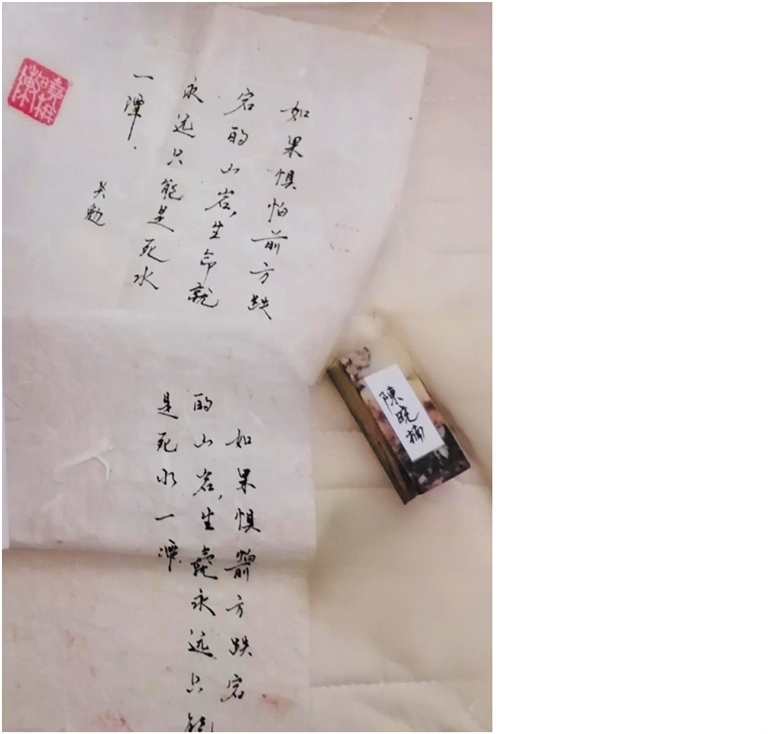 如果惧怕前方跌
宕的山岩，生命就
永远只能是死水
一潭．
共勉
如果惧怕前方跌宕
的山岩，生命就永远只能
是死水一潭
陳晓楠